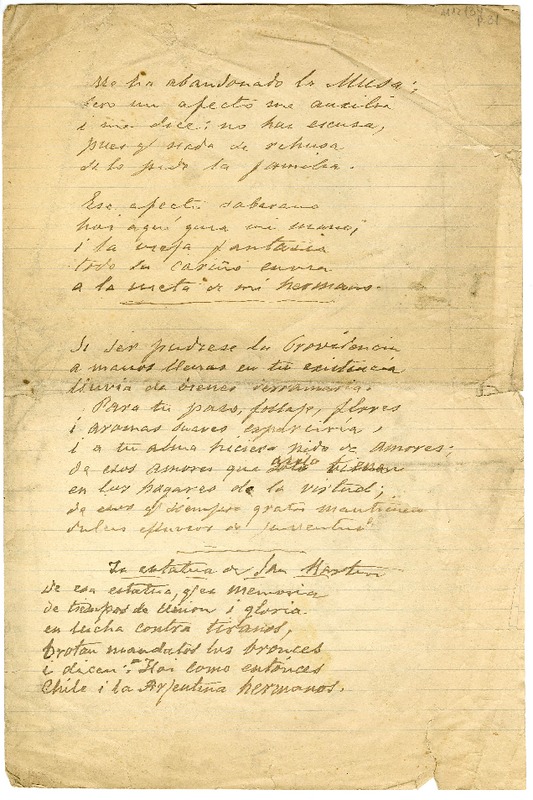 Me ha abandonado la Musa;
pero un afecto me auxilia
i me dice: no hai escusa,
pues qe nada se rehusa
de lo pide la familia.
Ese afecto soberano
hoi aquí guia mi mano;
i la vieja fantasía
todo su cariño envia
a la nieta de mi hermano.
Si ser pudiese la Providencia
a manos llenas en tu existencia
lluvia de bienes derramaria.
Para tu paso, follaje, flores
i aromas suaves esparciria,
i a tu alma hiciera nido de amores;
de esos amores que
en los hogares de la virtud;
de esos qe siempre gratos
dulces efluvios de juventud
La estatua de San Martin
De esa estatua, qe es memoria
de tiempos de union i gloria
en lucha contra tiranos,
brotan mandatos los bronces
i dicen: "Hoi como entónces
Chile i la Arjentina hermanos.